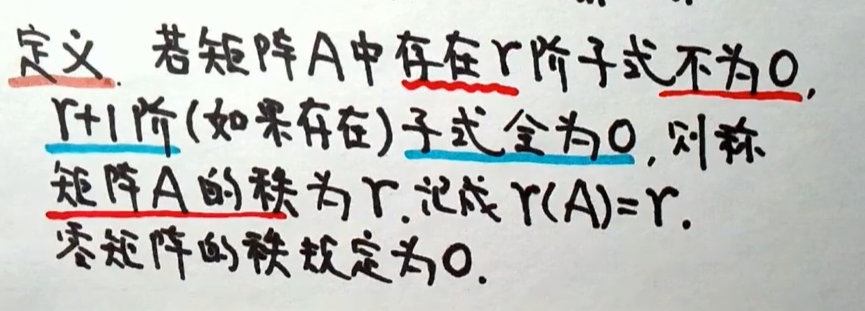 定义. 若矩阵A中存在r阶子式不为0,
r+1阶(如果存在)子式全为0, 则称
矩阵A的秩为r.记成r(A)=r.
零矩阵的秩规定为0.